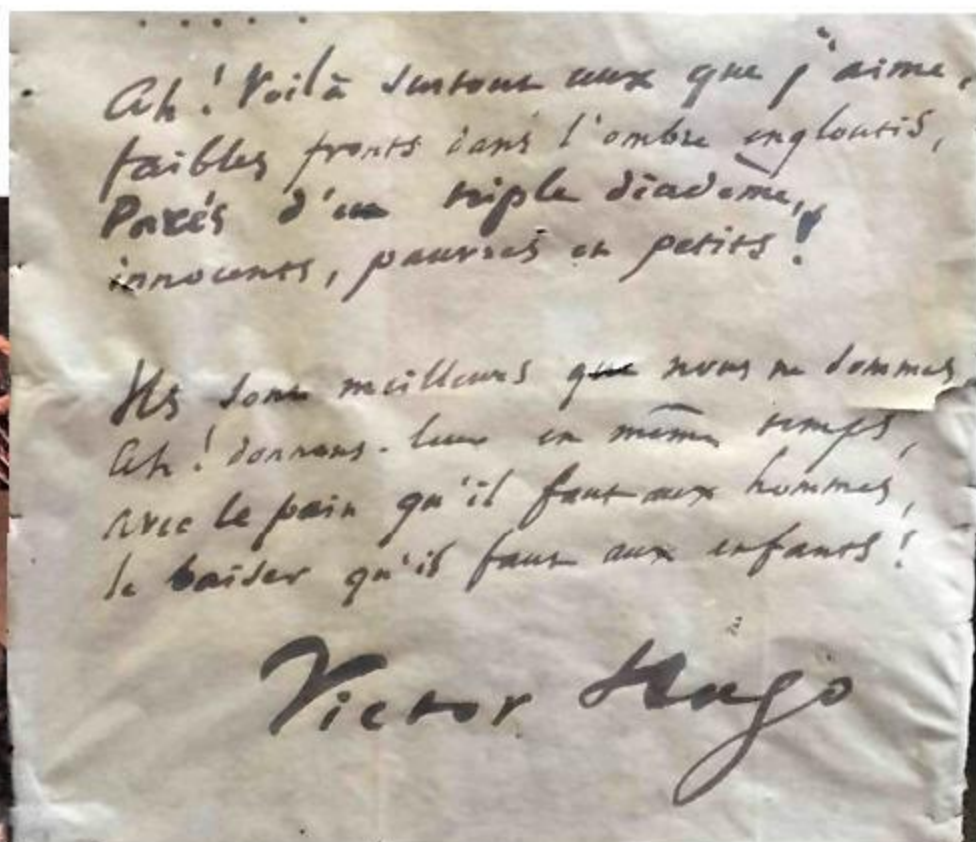 .....
Ah ! Voilà surtout ceux que j'aime,
faibles fronts dans l'ombre engloutis,
Parés d'un triple diadème,
innocents, pauvres et petits !
Ils sont meilleurs que nous ne sommes
Ah ! donnons-leur en même temps,
avec le pain qu'il faut aux hommes,
le baiser qu'il faut aux enfants !
Victor Hugo